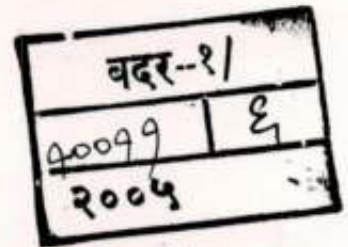 वदर--१/
१००११ ६
२००५